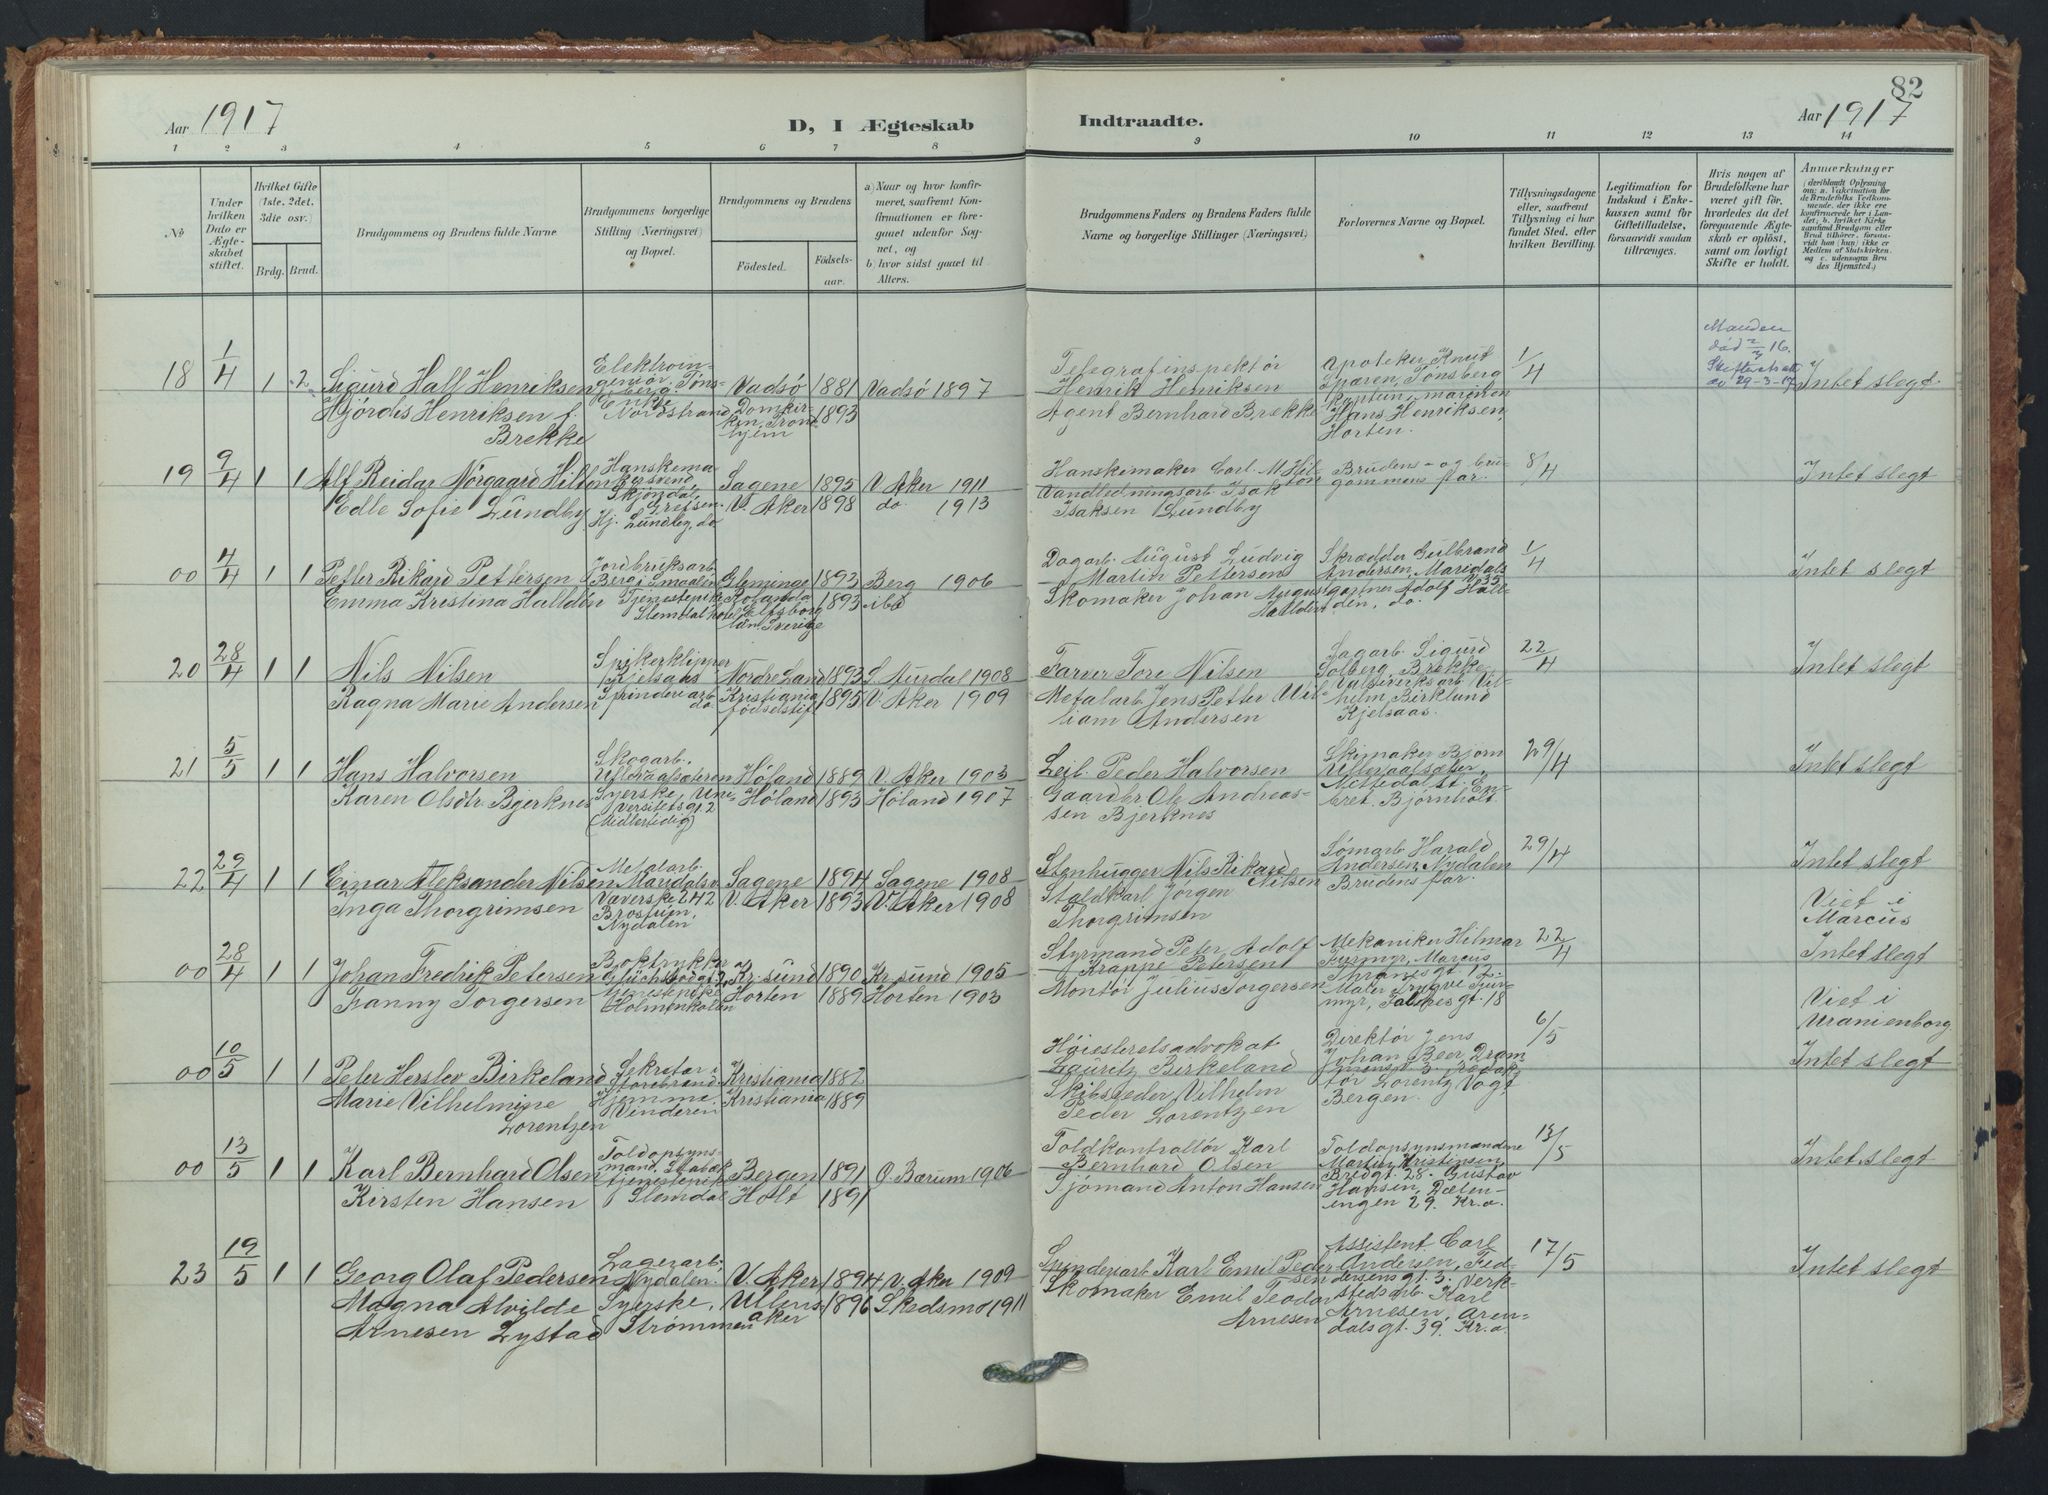 82
Aar 1917
D, I Ægteskab
Indtraadte.
Aar 1917
1 2 3 4 5 6 7 8 9 10 11 12 13 14
№
Under hvilken Dato er Ægteskabet stiftet.
Hvilket Gifte (1ste, 2det, 3die osv.)
Brdg. Brud.
Brudgommens og Brudens fulde Navne
Brudgommens borgerlige Stilling (Næringsvei) og Bopæl.
Brudgommens og Brudens
Fødested.
Fødselsaar.
a) Naar og hvor konfirmeret, saafremt Konfirmationen er foregaaet udenfor Sognet, og
b) hvor sidst gaaet til Alters.
Brudgommens Faders og Brudens Faders fulde Navne og borgerlige Stillinger (Næringsvei)
Forlovernes Navne og Bopæl.
Tillysningsdagene eller, saafremt Tillysning ei har fundet Sted, efter hvilken Bevilling.
Legitimation for Indskud i Enkekassen samt for Giftetilladelse, forsaavidt saadan tiltrænges.
Hvis nogen af Brudefolkene har været gift før, hvorledes da det foregaaende Ægteskab er opløst, samt om lovligt Skifte er holdt.
Anmærkninger
(deriblandt Oplysning om: a. Vakcination for de Brudefolks Vedkommende, der ikke ere konfirmerede her i Landet; b. hvilket Kirkesamfund Brudgom eller Brud tilhører, forsaavidt han (hun) ikke er Medlem af Statskirken, og c. udensogns Brudes Hjemsted.)
18 1/4 1 2 Sigurd Hall Henriksen
Elektroingeniør, Tønsberg
Vadsø 1881 Vadsø 1897
Telegrafinspektør Henrik Henriksen
Apoteker Knut Sparen, Tønsberg
1/4
Manden død 2/7 16.
Skifteattest av 29-3-17
Intet slegt.
Hjørdis Henriksen f. Brekke
Enke Nordstrand
Domkirken, Trondhjem 1893
Agent Bernhard Brekke
Kaptein, marinen Hans Henriksen, Horten.
19 9/4 1 1 Alf Reidar Nørgaard Hilton
Hanskemakersvend Skjøndal, Grefsen.
Sagene 1895 V. Aker 1911
Hanskemaker Carl M Hilton
Brudens- og brudgommens far.
8/4
Intet slegt
Edle Sofie Lundby
Hj. Lundby, do
V. Aker 1898 do. 1913
Vandledningsarb. Isak Isaksen Lundby
00 4/4 1 1 Petter Rikard Pettersen
Jordbruksarb. Berg i Smaalen
Gleminge 1893 Berg 1906
Dagarb. August Ludvig Martin Pettersen
Skrædder Gulbrand Andersen, Maridalsv 35
1/4
Intet slegt
Emma Kristina Halldén
Tjenestepike Slemdal
Elfsborg län Sverige 1893
Skomaker Johan August Halldén
gartner Adolf Halldén, do.
20 28/4 1 1 Nils Nilsen
Spikerklipper Kjelsaas
Nordre Land 1893 S. Aurdal 1908
Farver Tore Nilsen
Sagarb. Sigurd Solberg, Brekke
22/4
Intet slegt
Ragna Marie Andersen
Spinderiarb do
Kristiania fødselstif. 1895 V. Aker 1909
Metalarb Jens Petter William Andersen
Valseverksarb. Vilhelm Birklund Kjelsaas.
21 5/5 1 1 Hans Halvorsen
Skogarb. Ullevaalsæteren
Høland 1889 V. Aker 1903
Leil. Peder Halvorsen
Skimaker Bjørn Ullevaalsæter,
29/4
Intet slegt
Karen Olsdtr Bjerknes
Syerske, Universitetsgt 2 (Midlertidig)
Høland 1893 Høland 1907
Gaardbr. Ole Andreassen Bjerknes
Nittedal st. Enbret, Bjørnholt.
22 29/4 1 1 Einar Aleksander Nilsen
Metalarb. Maridalsv 242
Sagene 1894 Sagene 1908
Stenhugger Nils Rikard Nilsen
Tømarb Harald Andersen, Nydalen
29/4
Intet slegt
Inga Thorgrimsen
Væverske Brostuen, Nydalen
V. Aker 1893 V. Aker 1908
Staldkarl Jørgen Thorgrimsen
Brudens far.
Viet i Marcus
00 28/4 1 1 Johan Fredrik Petersen
Boktrykker
Kr.sund 1890 Kr.sund 1905
Styrmand Peter Adolf Krappe Petersen
Mekaniker Hilmar Furmyr, Marcus Thranesgt. 12.
22/4
Intet slegt
Fanny Torgersen
Tjenestepike Holmenkolen
Horten 1889 Horten 1903
Montør Julius Torgersen
Maler Trygve Furmyr, Falbesgt. 18
Viet i Uranienborg
00 10/5 1 1 Peter Herslev Birkeland
Sekretær i Storebrand
Kristiania 1882
Høiesteretsadvokat Lauritz Birkeland
Direktør Jens Johan Beer, Drammensv 3.
6/5
Intet slegt
Marie Vilhelmine Lorentzen
Hjemme. Vinderen
Kristiania 1889
Skibsreder Vilhelm Peder Lorentzen
Redaktør Lorentz Vogt, Bergen.
00 13/5 1 1 Karl Bernhard Olsen
Toldopsynsmand, Stabæk
Bergen 1891 Ø. Bærum 1906
Toldkontrollør Karl Bernhard Olsen
Toldopsynsmændene Martin Kristinsen, Bredgt. 28.
13/5
Intet slegt
Kirsten Hansen
tjenestepik Slemdal
Holt 1891
Sjømand Anton Hansen
Gustav Hansen, Dælenengen 29. Kr.a.
23 19/5 1 1 Georg Olaf Pedersen
Lagerarb, Nydalen.
V. Aker 1894 V. Aker 1909
Spinderiarb Karl Emil Pedersen
Assistent Carl Andersen, Feddersensgt. 3.
17/5
Intet slegt
Magna Alvilde Arnesen Lystad
Syerske, Strømmen
Ullensaker 1896 Skedsmo 1911
Skomaker Emil Teodor Arnesen
Verkstedsarb. Karl Arnesen, Arendalsgt. 39. Kr.a.